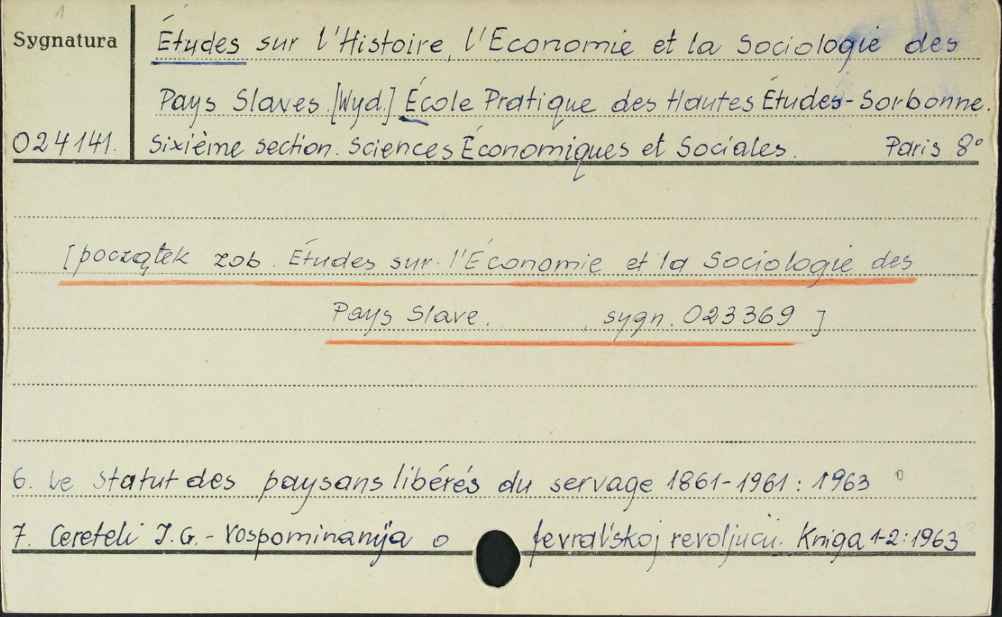 1
Sygnatura
Études sur l'Histoire, l'Economie et la Sociologie des
Pays Slaves. [Wyd.] École Pratique des Hautes Études-Sorbonne.
024141. Sixième section. Sciences Économiques et Sociales. Paris 8°
[początek zob. Études sur l'Économie et la Sociologie des
Pays Slave. , sygn. 023369 ]
6. Le statut des paysans libérés du servage 1861-1961 : 1963
7. Cereteli I.G. - Vospominanija o fevral'skoj revoljucii. Kniga 1-2 : 1963